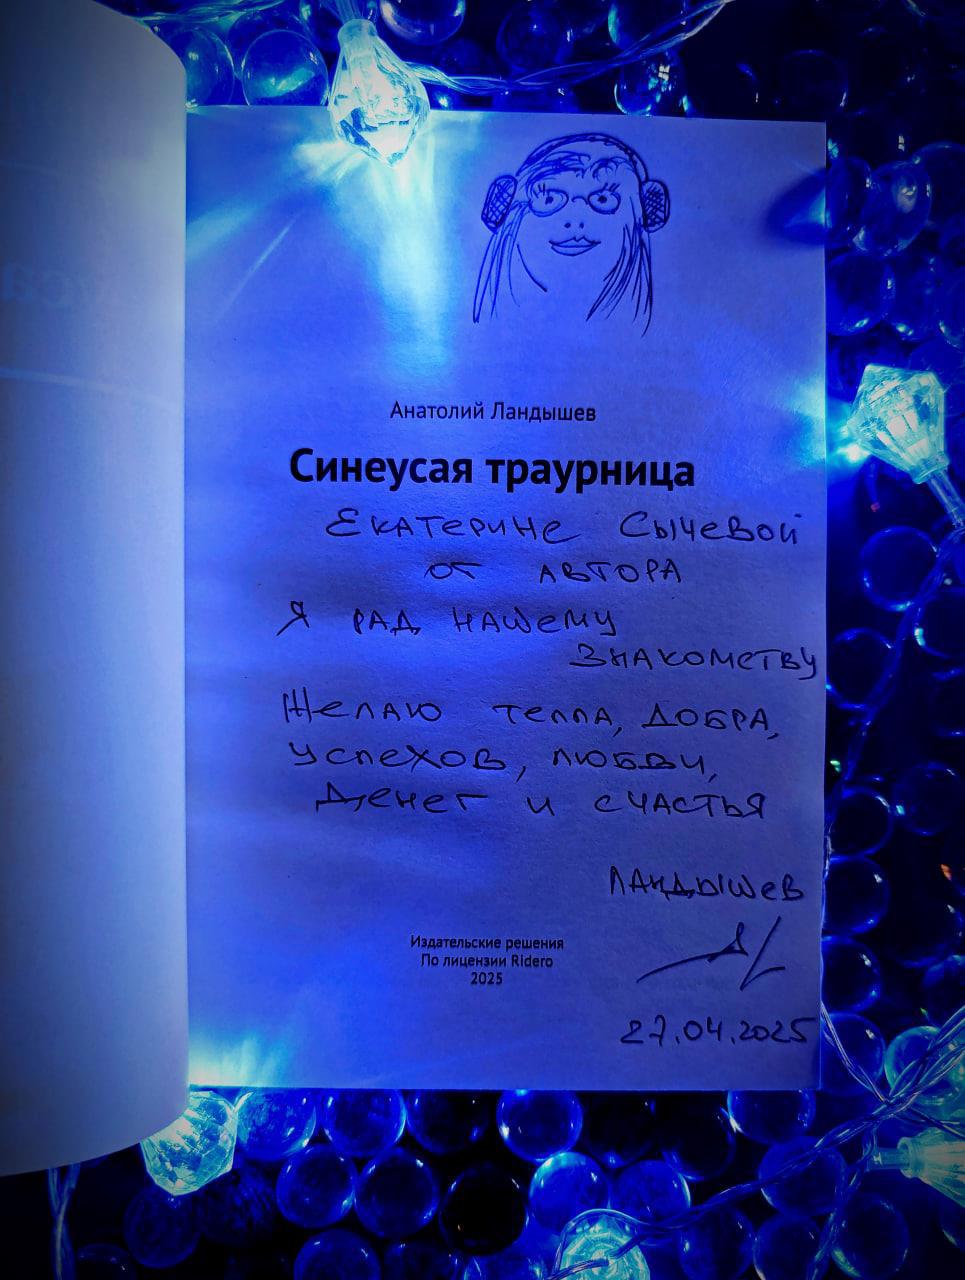 Анатолий Ландышев
Синеусая траурница
Екатерине Сычевой
от автора
Я рад нашему
знакомству
Желаю тепла, добра,
успехов, любви,
денег и счастья
Ландышев
Издательские решения
По лицензии Ridero
2025
27.04.2025